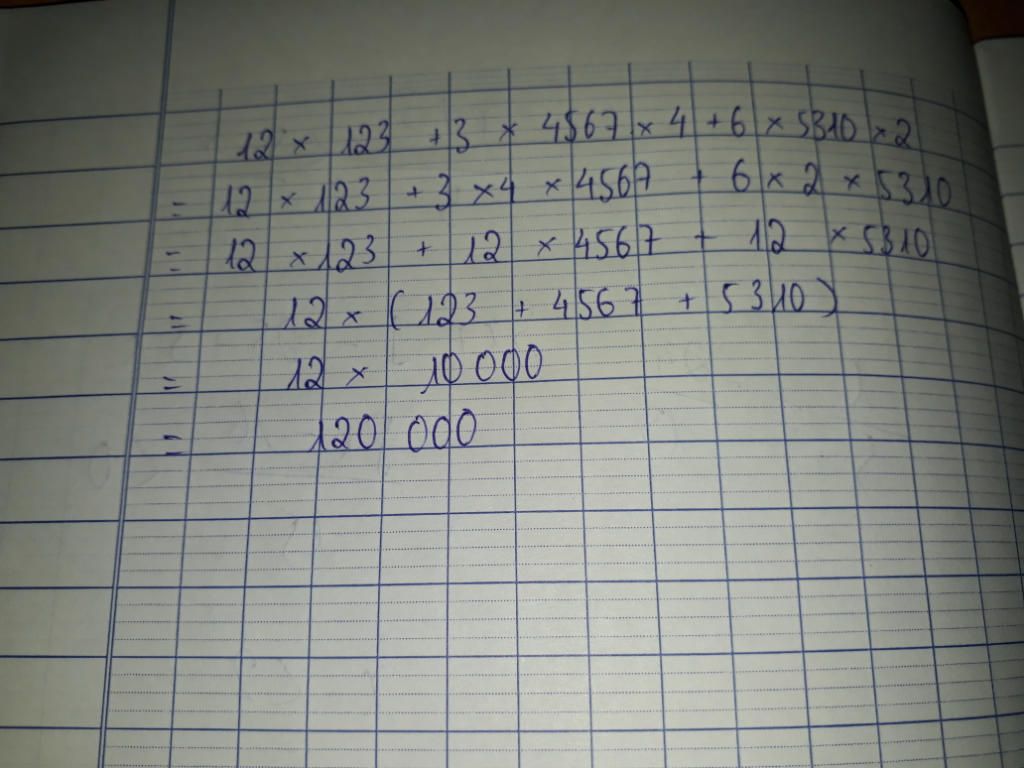 12 × 123 + 3 × 4567 × 4 + 6 × 5310 × 2
= 12 × 123 + 3 × 4 × 4567 + 6 × 2 × 5310
= 12 × 123 + 12 × 4567 + 12 × 5310
= 12 × (123 + 4567 + 5310)
= 12 × 10 000
= 120 000